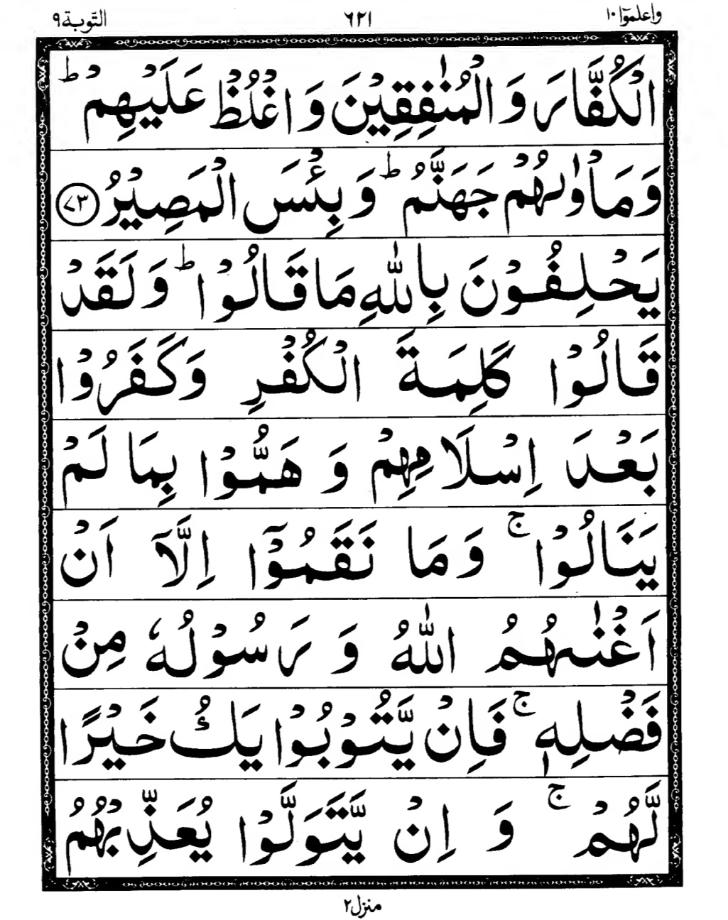 واعلموٓا ١٠ ٦٢١ التوبة ٩
الْكُفَّارَ وَالْمُنٰفِقِيْنَ وَاغْلُظْ عَلَيْهِمْ ؕ
وَمَاْوٰىهُمْ جَهَنَّمُ ؕ وَبِئْسَ الْمَصِيْرُ ﴿٧٣﴾
يَحْلِفُوْنَ بِاللّٰهِ مَا قَالُوْا ؕ وَلَقَدْ
قَالُوْا كَلِمَةَ الْكُفْرِ وَكَفَرُوْا
بَعْدَ اِسْلَامِهِمْ وَ هَمُّوْا بِمَا لَمْ
يَنَالُوْا ۚ وَمَا نَقَمُوْٓا اِلَّاۤ اَنْ
اَغْنٰىهُمُ اللّٰهُ وَ رَسُوْلُهٗ مِنْ
فَضْلِهٖ ۚ فَاِنْ يَّتُوْبُوْا يَكُ خَيْرًا
لَّهُمْ ۚ وَ اِنْ يَّتَوَلَّوْا يُعَذِّبْهُمُ
منزل ٢